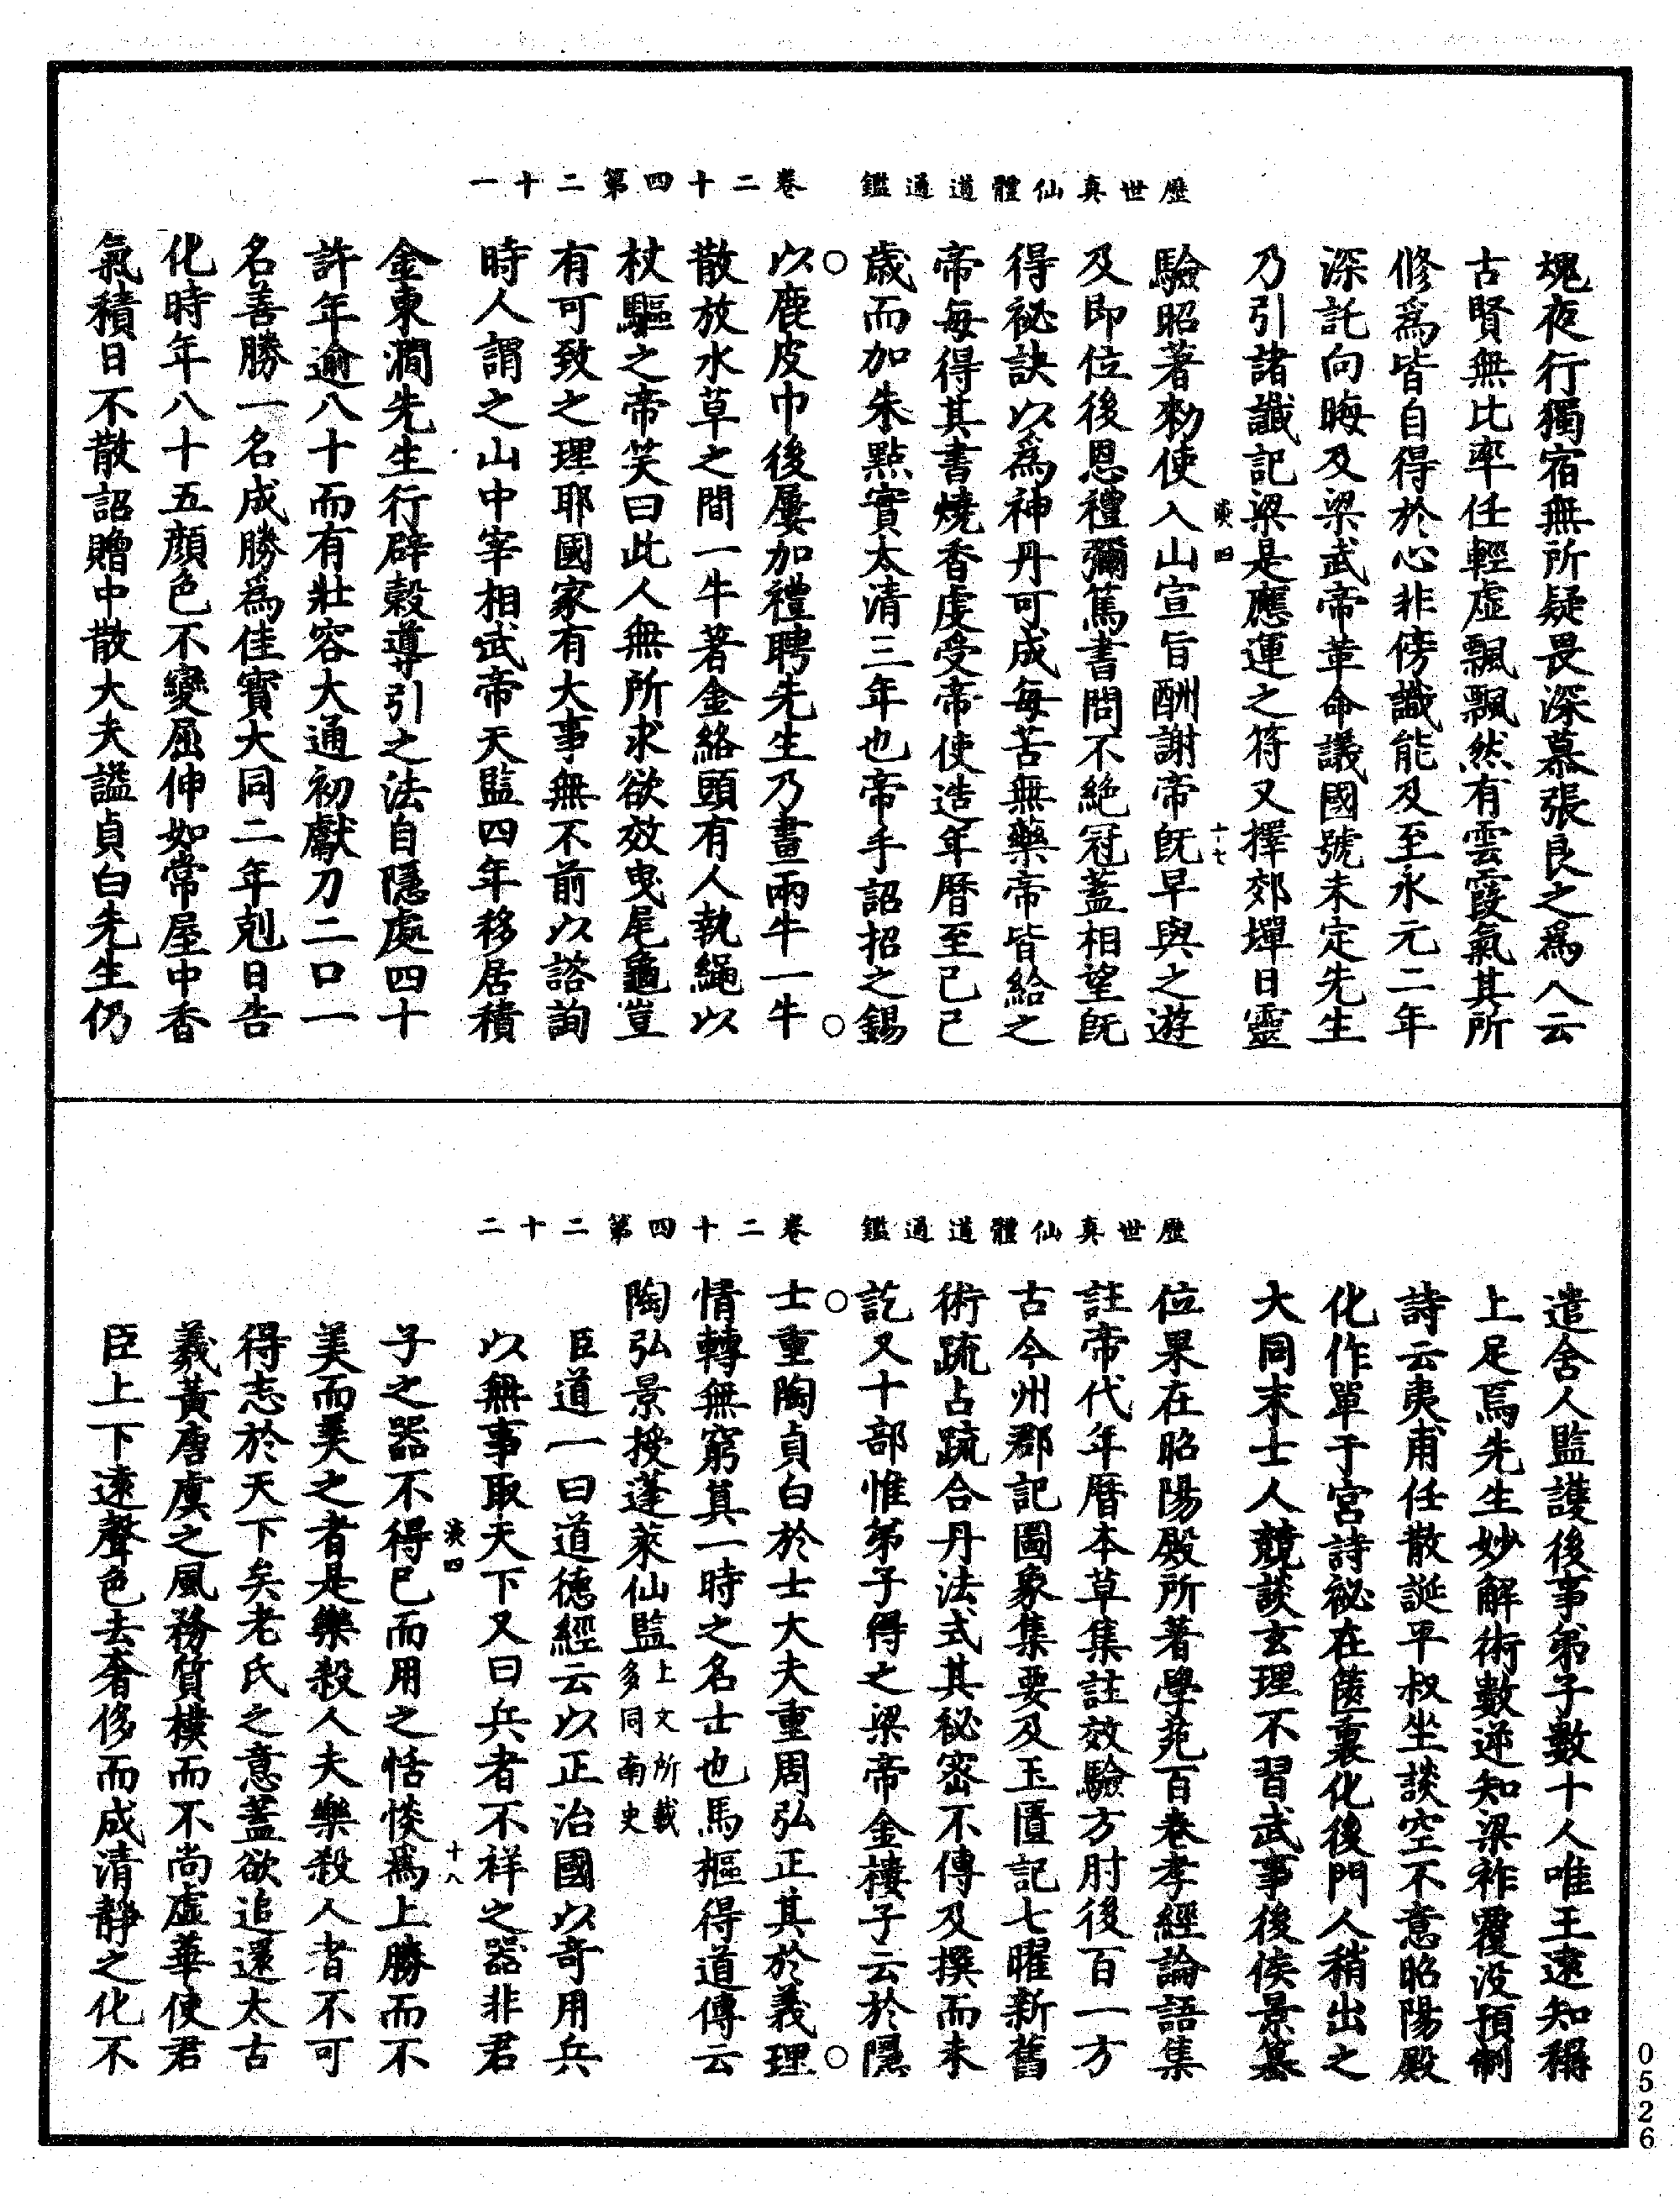 歷世真仙體道通鑑　卷二十四第二十一
塊夜行獨宿無所疑畏深慕張良之爲人云
古賢無比率任輕虛飄飄然有雲霞氣其所
修爲皆自得於心非傍識能及至永元二年
深託向晦及梁武帝革命議國號未定先生
乃引諸讖記梁是應運之符又擇郊墠日靈
演四　十七
驗昭著勑使入山宣旨酬謝帝旣早與之遊
及即位後恩禮彌篤書問不絕冠蓋相望旣
得祕訣以爲神丹可成每苦無藥帝皆給之
帝每得其書燒香虔受帝使造年曆至己巳
歲而加朱點實太清三年也帝手詔招之錫
○　○
以鹿皮巾後屢加禮聘先生乃畫兩牛一牛
散放水草之間一牛著金絡頭有人執繩以
杖驅之帝笑曰此人無所求欲效曳尾龜豈
有可致之理耶國家有大事無不前以諮詢
時人謂之山中宰相武帝天監四年移居積
金東澗先生行辟穀導引之法自隱處四十
許年逾八十而有壯容大通初獻刀二口一
名善勝一名成勝爲佳寳大同二年剋日告
化時年八十五顏色不變屈伸如常屋中香
氣積日不散詔贈中散大夫謚貞白先生仍
歷世真仙體道通鑑　卷二十四第二十二
遣舍人監護後事弟子數十人唯王遠知稱
上足焉先生妙解術數逆知梁祚覆没預制
詩云夷甫任散誕平叔坐談空不意昭陽殿
化作單于宮詩祕在篋裏化後門人稍出之
大同末士人競談玄理不習武事後侯景篡
位果在昭陽殿所著學苑百卷孝經論語集
註帝代年曆本草集註效驗方肘後百一方
古今州郡記圖象集要及玉匱記七曜新舊
術疏占疏合丹法式其秘密不傳及撰而未
訖又十部惟弟子得之梁帝金樓子云於隱
○　○
士重陶貞白於士大夫重周弘正其於義理
情轉無窮其一時之名士也馬樞得道傳云
陶弘景授蓬萊仙監上文所載多同南史
臣道一曰道德經云以正治國以奇用兵
以無事取天下又曰兵者不祥之器非君
演四　十八
子之器不得已而用之恬惔爲上勝而不
美而美之者是樂殺人夫樂殺人者不可
得志於天下矣老氏之意蓋欲追還太古
羲黃唐虞之風務質樸而不尚虛華使君
臣上下遠聲色去奢侈而成清靜之化不
0526